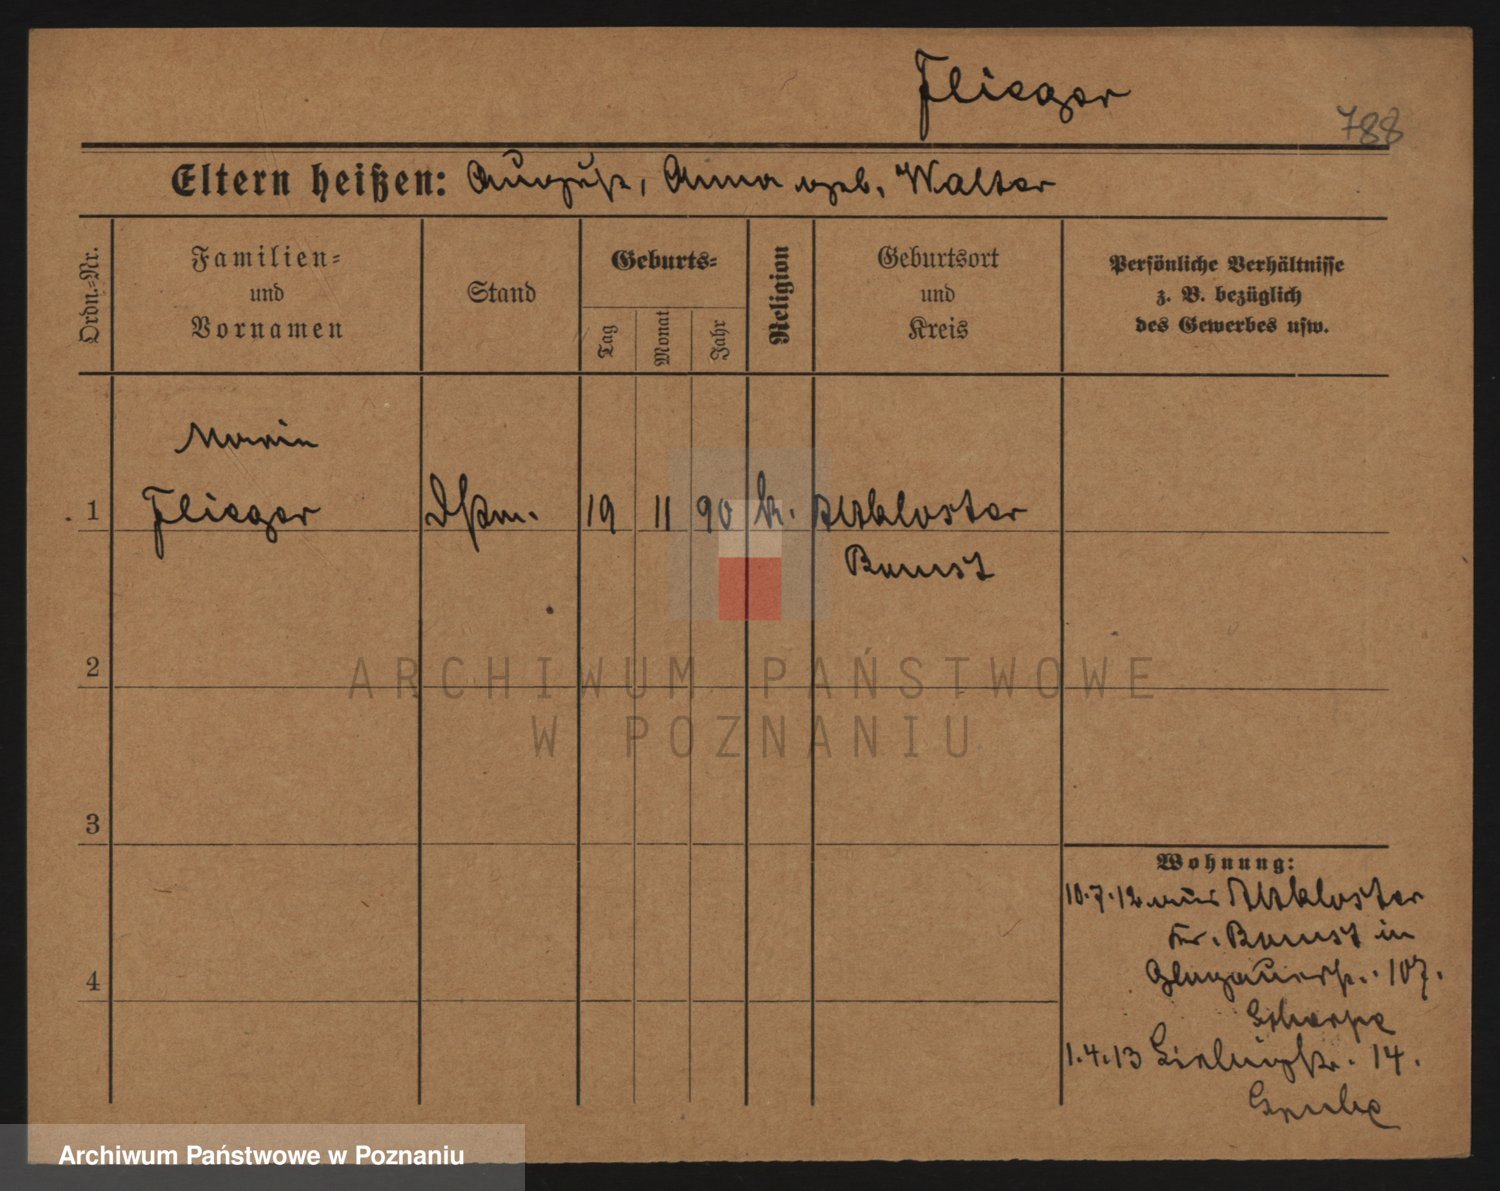 Flieger
788
Eltern heißen: August, Anna geb. Walter
Ordn.-Nr.
Familien-
und
Vornamen
Stand
Geburts-
Tag
Monat
Jahr
Religion
Geburtsort
und
Kreis
Persönliche Verhältnisse
z. B. bezüglich
des Gewerbes usw.
Maria
1 Flieger Dstm. 19 11 90 k. Altkloster
Bomst
2
ARCHIWUM PAŃSTWOWE
W POZNANIU
3
4
Wohnung:
10.7.12 aus Altkloster
Kr. Bomst in
Glogauerstr. 107.
1.4.13 14.
Archiwum Państwowe w Poznaniu